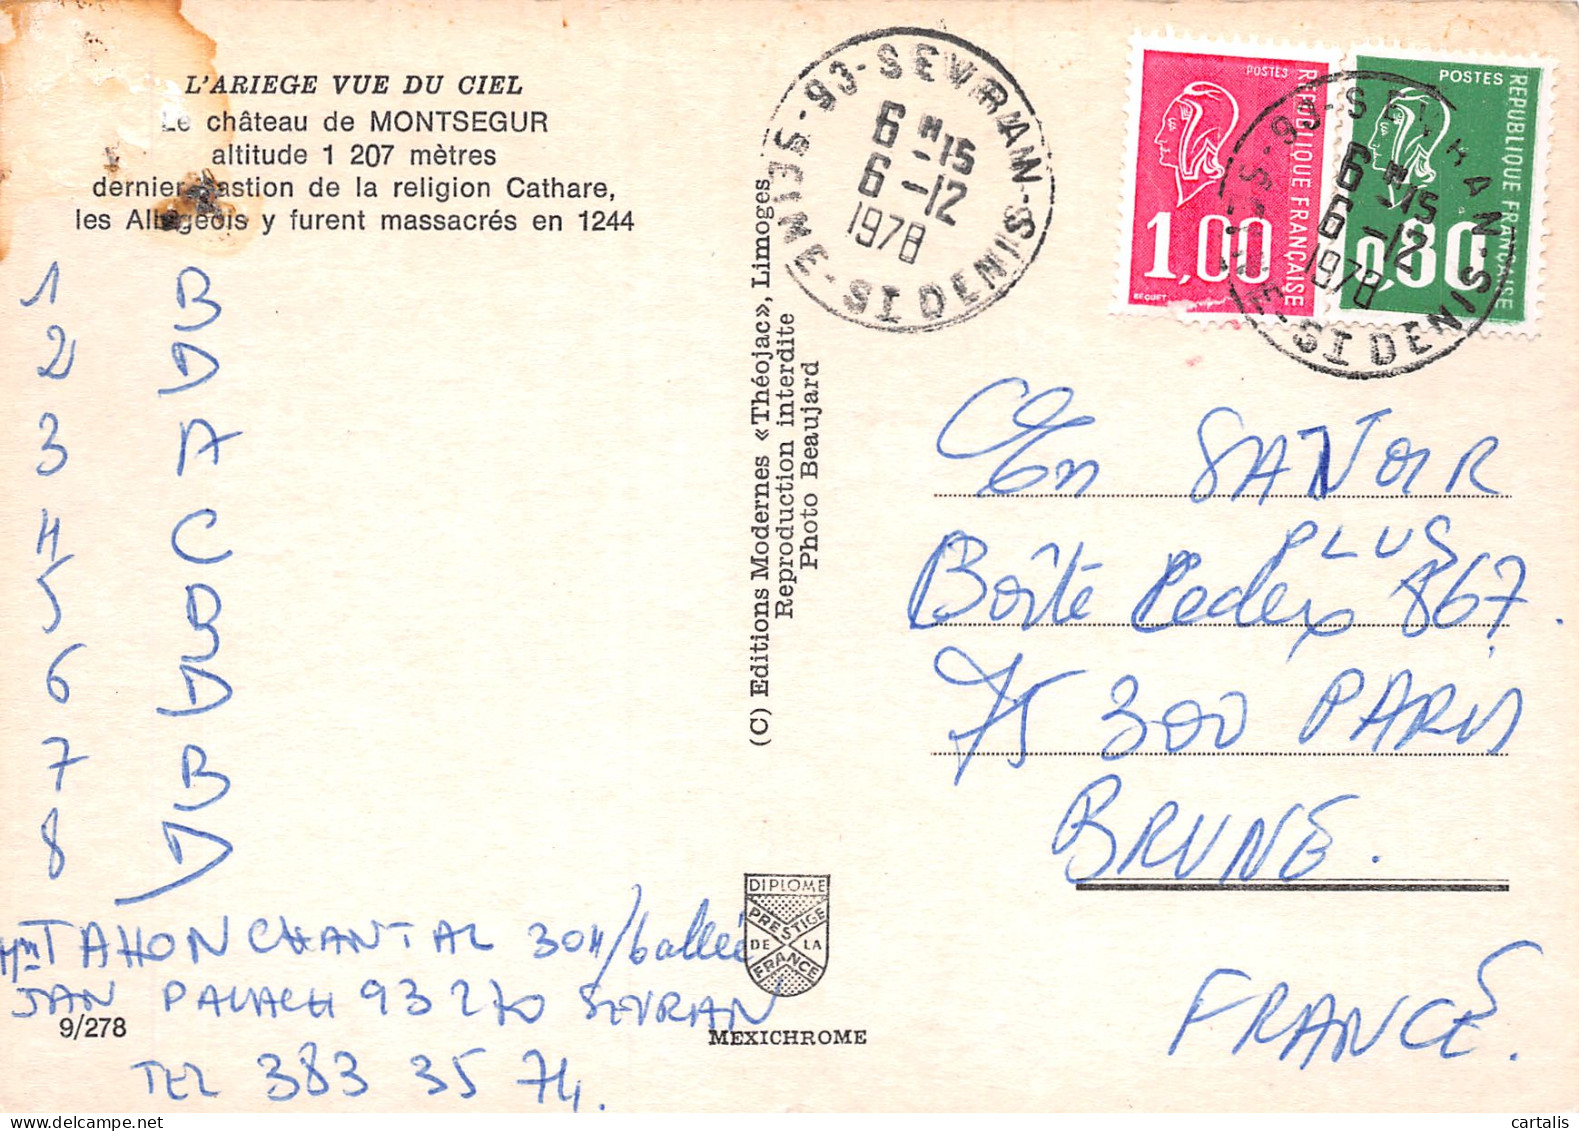 L'ARIEGE VUE DU CIEL
Le château de MONTSEGUR
altitude 1 207 mètres
dernier bastion de la religion Cathare,
les Albigeois y furent massacrés en 1244
1 B
2 D
3 A
4 C
5 B
6 D
7 B
8 D
Mme TAHON CHANTAL 304/6 allée
JAN PALACH 93270 SEVRAN
9/278
TEL 383 35 74.
(C) Editions Modernes «Théojac», Limoges
Reproduction interdite
Photo Beaujard
DIPLOME
PRESTIGE
DE LA
FRANCE
MEXICHROME
93-SEVRAN
SEINE-ST DENIS
6 H 15
6 -12
1978
POSTES
REPUBLIQUE FRANÇAISE
1,00
BEQUET
POSTES
REPUBLIQUE FRANÇAISE
0,80
93-SEVRAN
SEINE-ST DENIS
6 H 15
6 -12
1978
En SAVOIR
PLUS
Boîte Pedex 867.
75 300 PARIS
BRUNE.
FRANCE.
cartalis